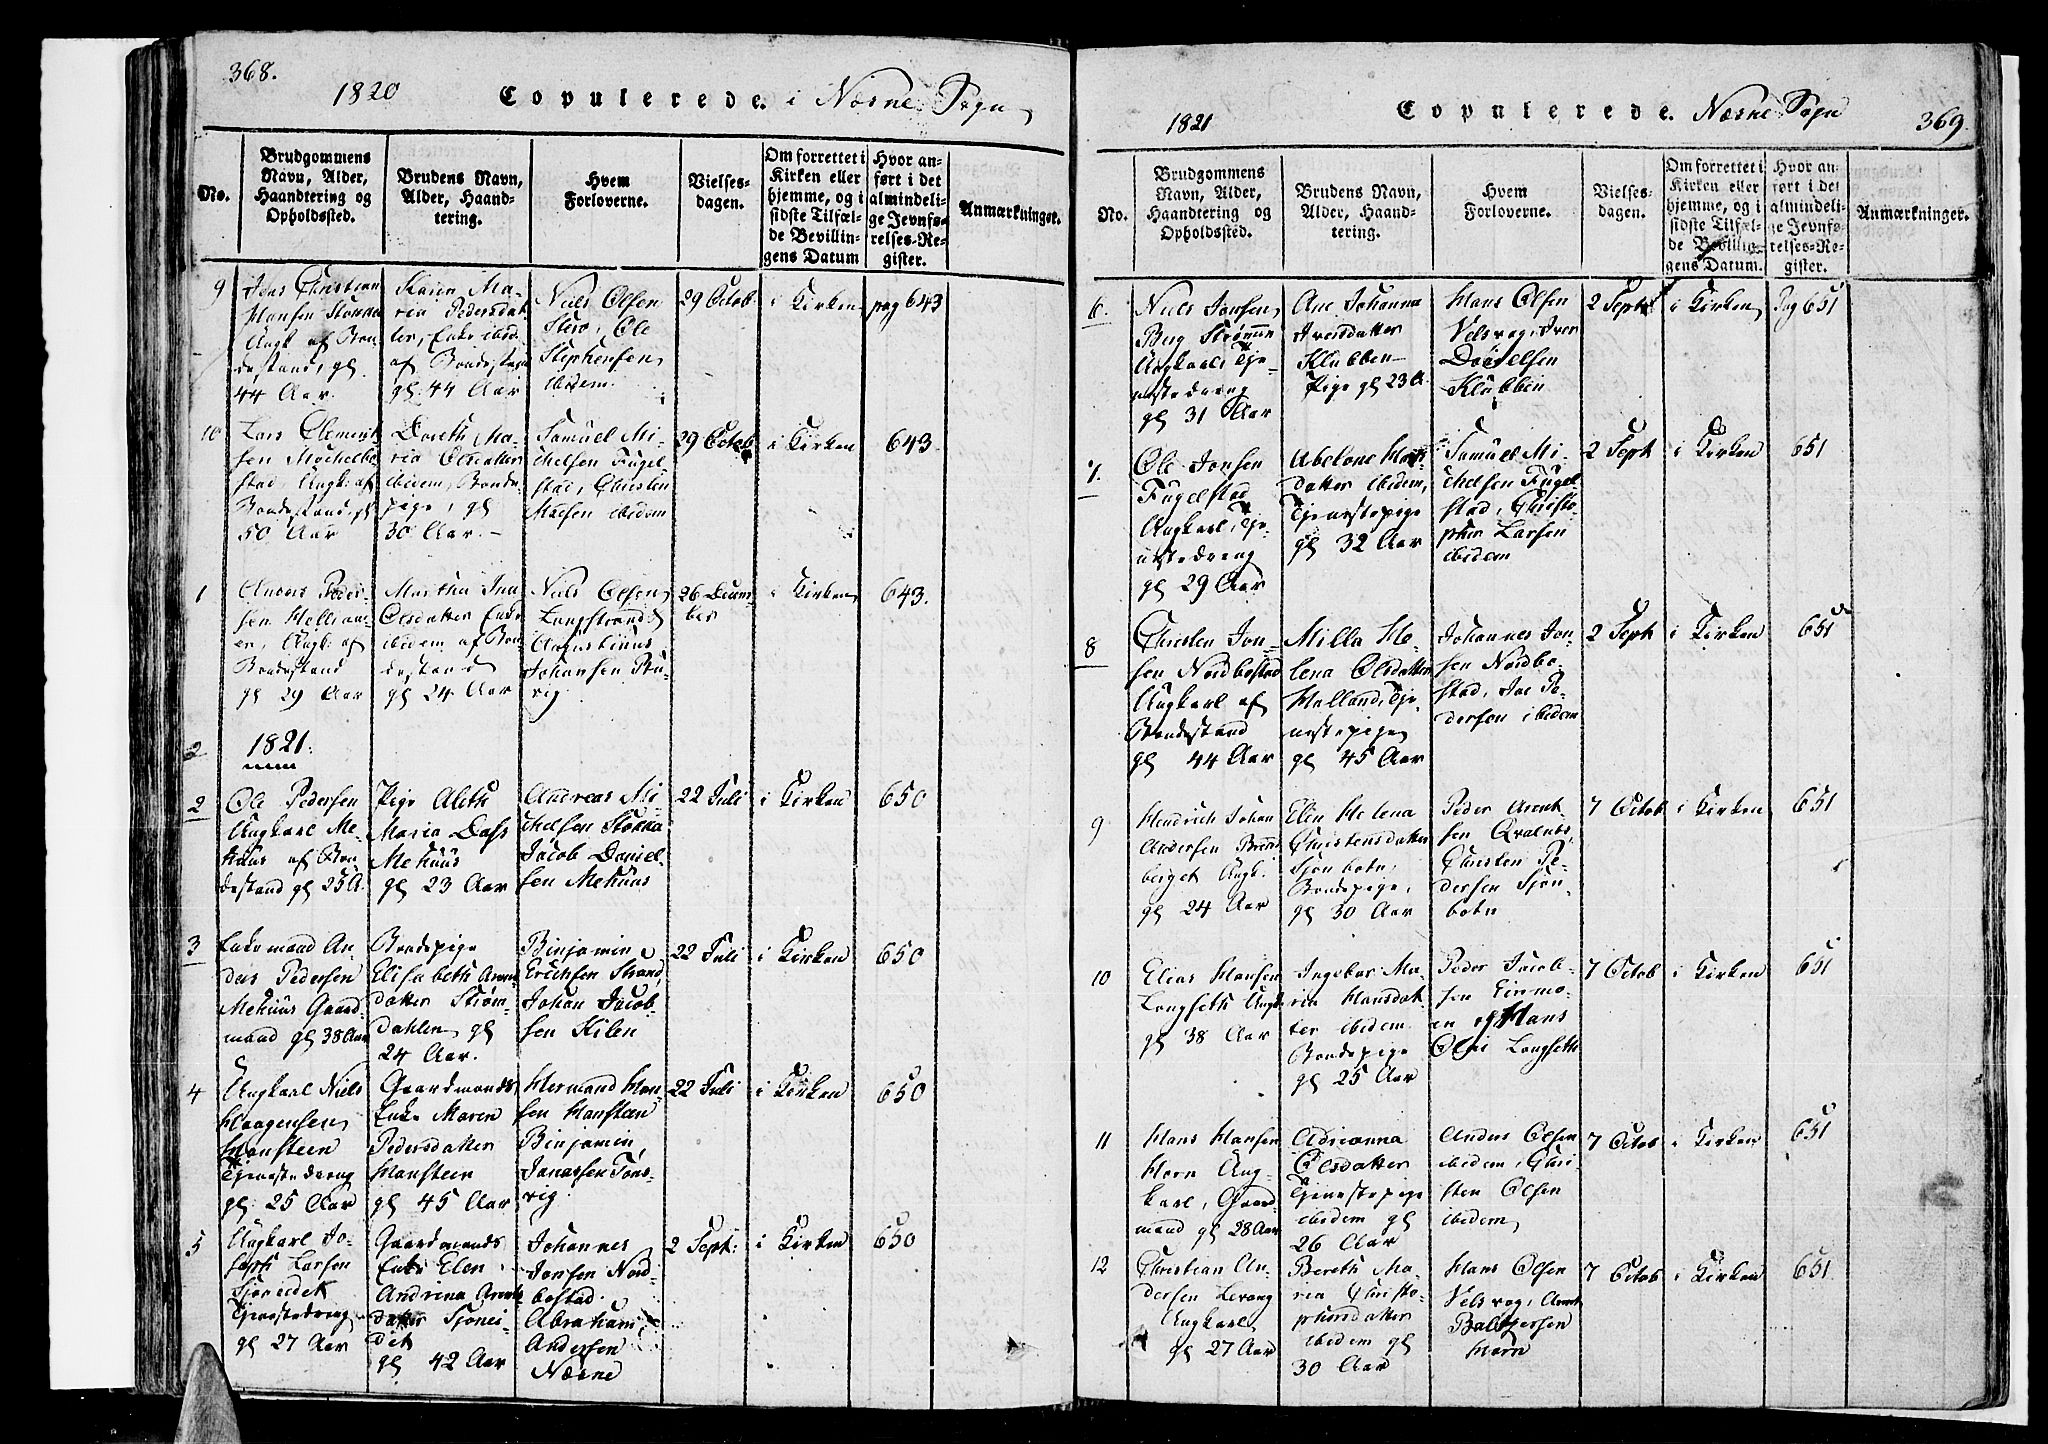 368.
1820 Copulerede. i Næsne Sogn
No.
Brudgommens
Navn, Alder,
Haandtering og
Opholdssted.
Brudens Navn,
Alder, Haand-
tering.
Hvem
Forloverne.
Vielses-
dagen.
Om forrettet i
Kirken eller
hjemme, og i
sidste Tilfæl-
de Bevillin-
gens Datum
Hvor an-
ført i det
almindeli-
ge Jevnfø-
relses-Re-
gister.
Anmærkninger.
9
Jens Christian
Hansen
Ungk. af Bon-
destand, gl.
44 Aar.
Karen Ma-
ria Pedersdat-
ter, Enke ibid
af Bondestand
gl. 44 Aar
Niels Olsen
Ole
Stephensen
ibidem.
29 Octob
i Kirken
pag 643
10
Lars Clement-
sen
stad, Ungk: af
Bondestand, gl
50 Aar
Doreth Ma-
ria Olsdatter
ibidem, Bonde-
pige, gl
30 Aar.-
Samuel Mi-
chelsen Fugel-
stad, Christen
ibidem
29 Octob
i Kirken
643.
1
Anders Peder-
sen
Ungk: af
Bondestand
gl 29 Aar
Martha
Olsdatter Enke
ibidem af Bon-
destand
gl 24 Aar
Niels Olsen
Langstrand
Augustinus
Johansen
vig.
26 Decem-
ber
i Kirken
643.
2
1821.
2
Ole Pedersen
Ungkarl Me-
huus af Bon-
destand gl 25 A.
Pige Aleth
Maria Dass
Mehuus
gl 23 Aar
Andreas Mi-
chelsen Stokka
Jacob Daniel-
sen Mehuus
22 Juli
i Kirken
650
3
Enkemand An-
ders Pedersen
Mehuus Gaard-
mand gl 38 Aar
Bondepige
Elisabeth Arent
datter Strøm-
dahlen gl
24 Aar.
Binjamin
Erichsen Strand,
Johan Jacob-
sen Kilen
22 Juli
i Kirken
650
4
Ungkarl Niels
Haagensen
Hansteen
Tjenestedreng
gl. 25 Aar
Gaardmands
Enke Maren
Pedersdatter
Hansteen
gl 45 Aar
Hermand Han-
sen Hansteen
Binjamin
Janassen
vig.
22 Juli
i Kirken
650
5
Ungkarl Jo-
seph Larsen
Sjoneidet
Tjenestedreng
gl 27 Aar
Gaardmands
Enke Elen
Andrina Arent
datter Sjonei-
det
gl 42 Aar
Johannes
Jonsen Nord-
bostad.
Abraham
Andersen
Næsne
2 Sept:
i Kirken
650
1821 Copulerede. Næsne Sogn 369.
No.
Brudgommens
Navn, Alder,
Haandtering og
Opholdssted.
Brudens Navn,
Alder, Haand-
tering.
Hvem
Forloverne.
Vielses-
dagen.
Om forrettet i
Kirken eller
hjemme, og i
sidste Tilfæl-
de Bevillin-
gens Datum.
Hvor an-
ført i det
almindeli-
ge Jevnfø-
relses-Re-
gister.
Anmærkninger.
6.
Niels Jonsen
Ungkarl, Tje-
nestedreng
gl 31 Aar
Ane Johanna
Iversdatter
Klubben-
Pige gl 23 A.
Hans Olsen
Velsvog, Iver
Danielsen
Klubben
2 Sept
i Kirken
Pag 651
7.
Ole Jonsen
Fugelstad
Ungkarl, Tje-
nestedreng
gl 29 Aar
Abelone Hans
datter ibidem,
Tjenestepige
gl 32 Aar
Samuel Mi-
chelsen Fugel-
stad, Christo-
pher Larsen
ibidem
2 Sept
i Kirken
651
8
Christen Jon-
sen Nordbostad
Ungkarl af
Bondestand
gl 44 Aar
Milla He-
lena Olsdatter
Halland, Tje-
nestepige
gl 45 Aar
Johannes Jon-
sen Nordbo-
stad, Joe Pe-
dersen ibidem
2 Sept
i Kirken
651
9
Hendrich Johan
Andersen
berget Ungk:
gl 24 Aar
Elen Helena
Christensdatter
Sjonbotn,
Bondepige,
gl 30 Aar
Peder Arent
sen Qvalnes,
Christen Pe-
dersen Sjon-
botn
7 Octob
i Kirken
651
10
Elias Hansen
Langseth Ungk
gl 38 Aar
Ingebor Ma-
ria Hansdat-
ter ibidem
Bondepige
gl 25 Aar
Peder Jacob-
sen Einmo-
en og Hans
Olai Langseth
7 Octob
i Kirken
651
11
Hans Hansen
Horn Ung-
karl, Gaard
mand gl 28 Aar
Adrianna
Olsdatter
Tjenestepige
ibidem gl
26 Aar
Anders Olsen
ibidem, Chri-
sten Olsen
ibidem
7 Octob
i Kirken
651
12
Christian An-
dersen Levang
Ungkarl
gl 27 Aar
Bereth Ma-
ria Christo-
phersdatter
ibidem gl
30 Aar
Hans Olsen
Velsvog, Arent
Baltzersen
Horn
7 Octob
i Kirken
651